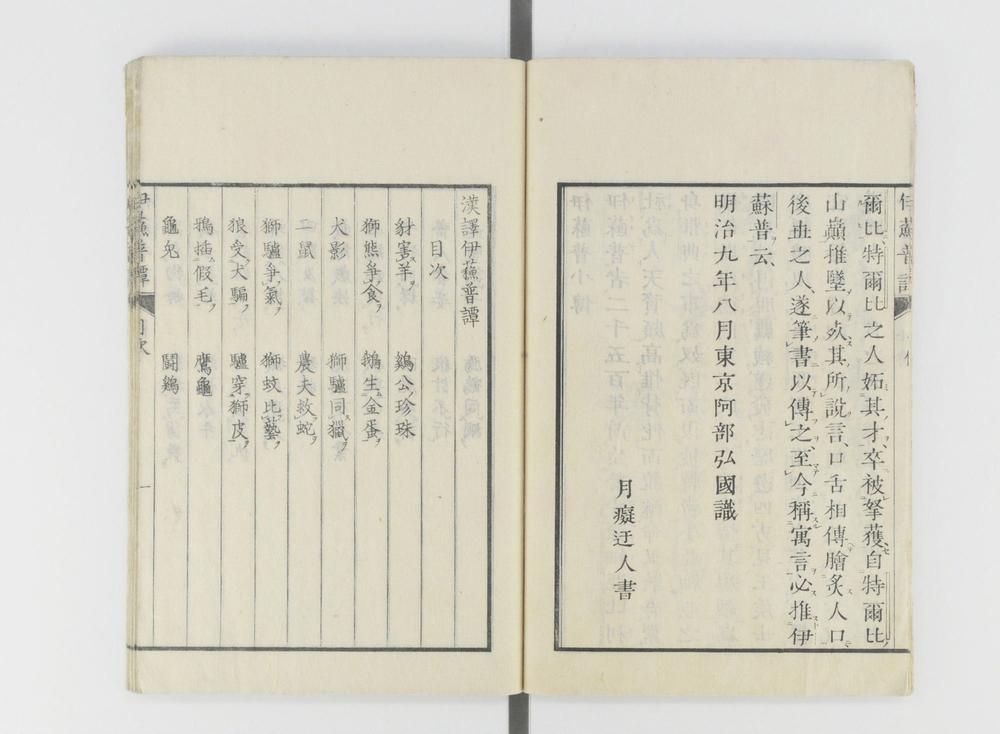 爾比、特爾比之人妬其才、卒被拏獲、自特爾比
山巓推墜、以㱼其所說言、口舌相傳膾炙人口
後世之人、遂筆書以傳之、至今稱寓言必推伊
蘇普云、
明治九年八月東京阿部弘國識
月癡迂人書
漢譯伊蘓普譚
目次
豺害羊 鷄公珍珠
獅熊爭食 鵝生金蛋
犬影 獅驢同獵
二鼠 農夫救蛇
獅驢爭氣 獅蚊比藝
狼受犬騙 驢穿獅皮
鴉插假毛 鷹龜
龜兔 鬪鷄
伊蘓普譚 目次 一